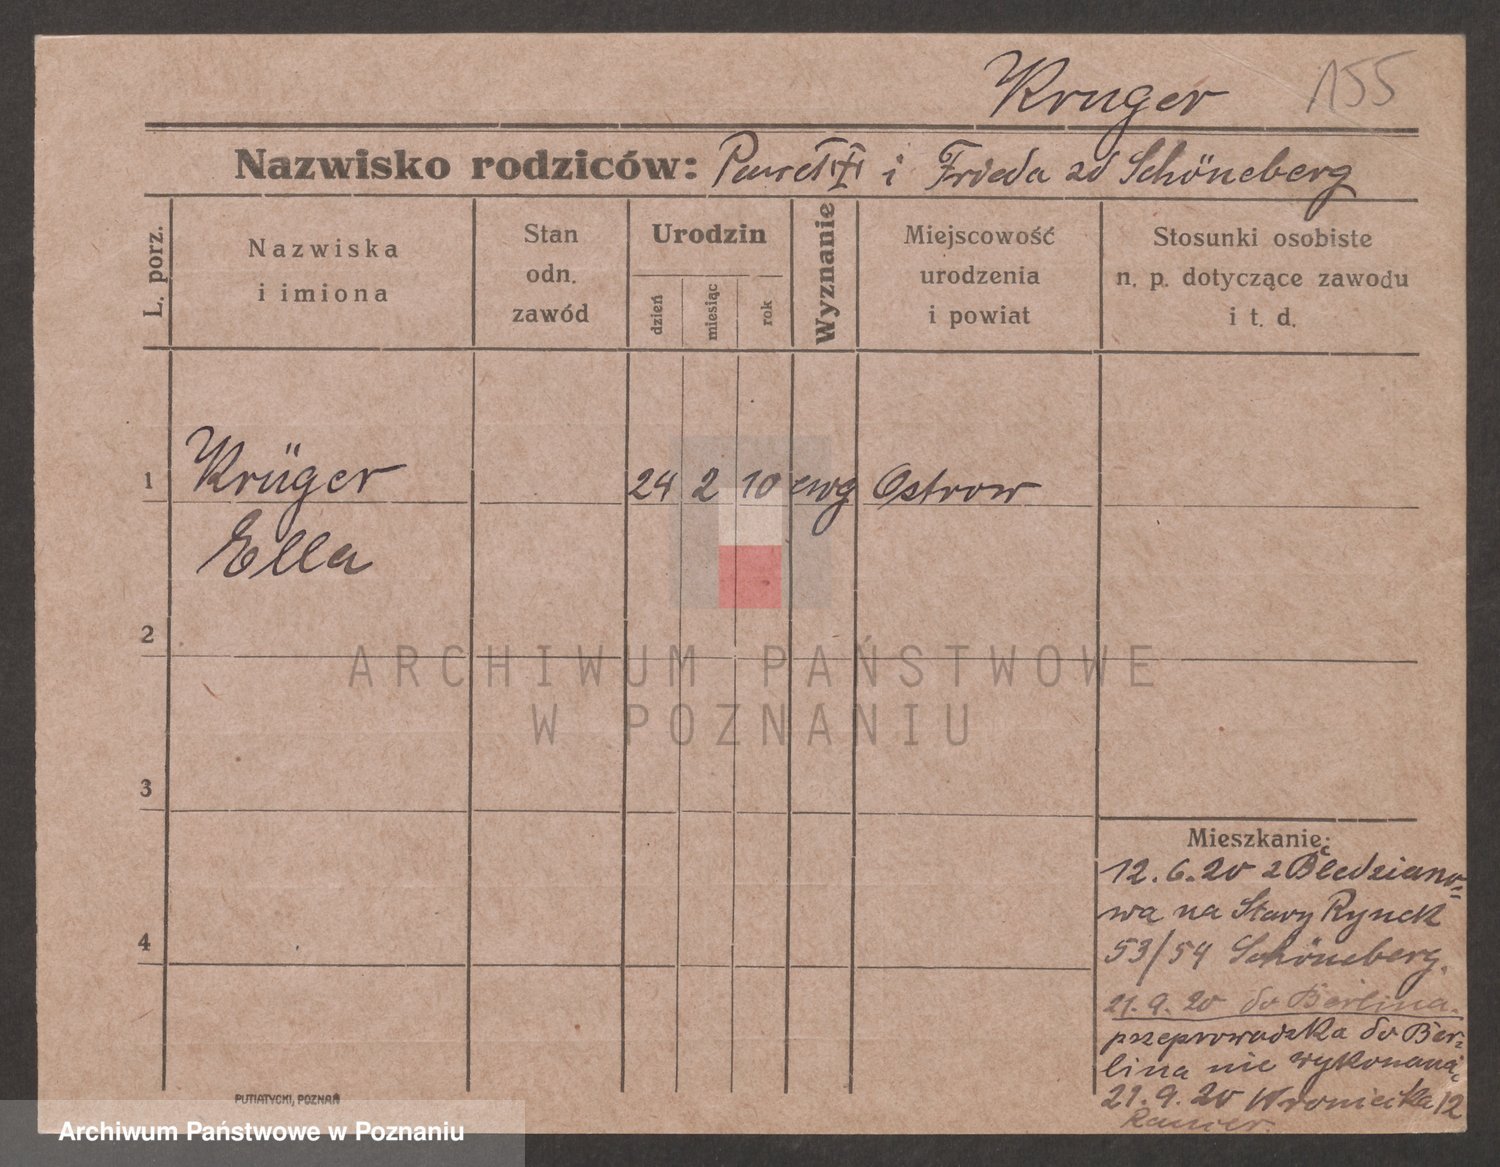 Kruger 155
Nazwisko rodziców: Paweł i Frieda zd Schöneberg
L. porz.
Nazwiska
i imiona
Stan
odn.
zawód
Urodzin
dzień
miesiąc
rok
Wyznanie
Miejscowość
urodzenia
i powiat
Stosunki osobiste
n. p. dotyczące zawodu
i t. d.
1 Krüger 24 2 10 ewg Ostrow
Ella
2
3
4
ARCHIWUM PAŃSTWOWE
W POZNANIU
Mieszkanie:
12.6.20 z Bledziano-
wa na Stary Rynek
53/54 Schöneberg.
21.9.20 do Berlina.
przeprowadzka do Ber-
lina nie wykonana,
21.9.20 Wroniecka 12
PUTIATYCKI, POZNAŃ
Archiwum Państwowe w Poznaniu